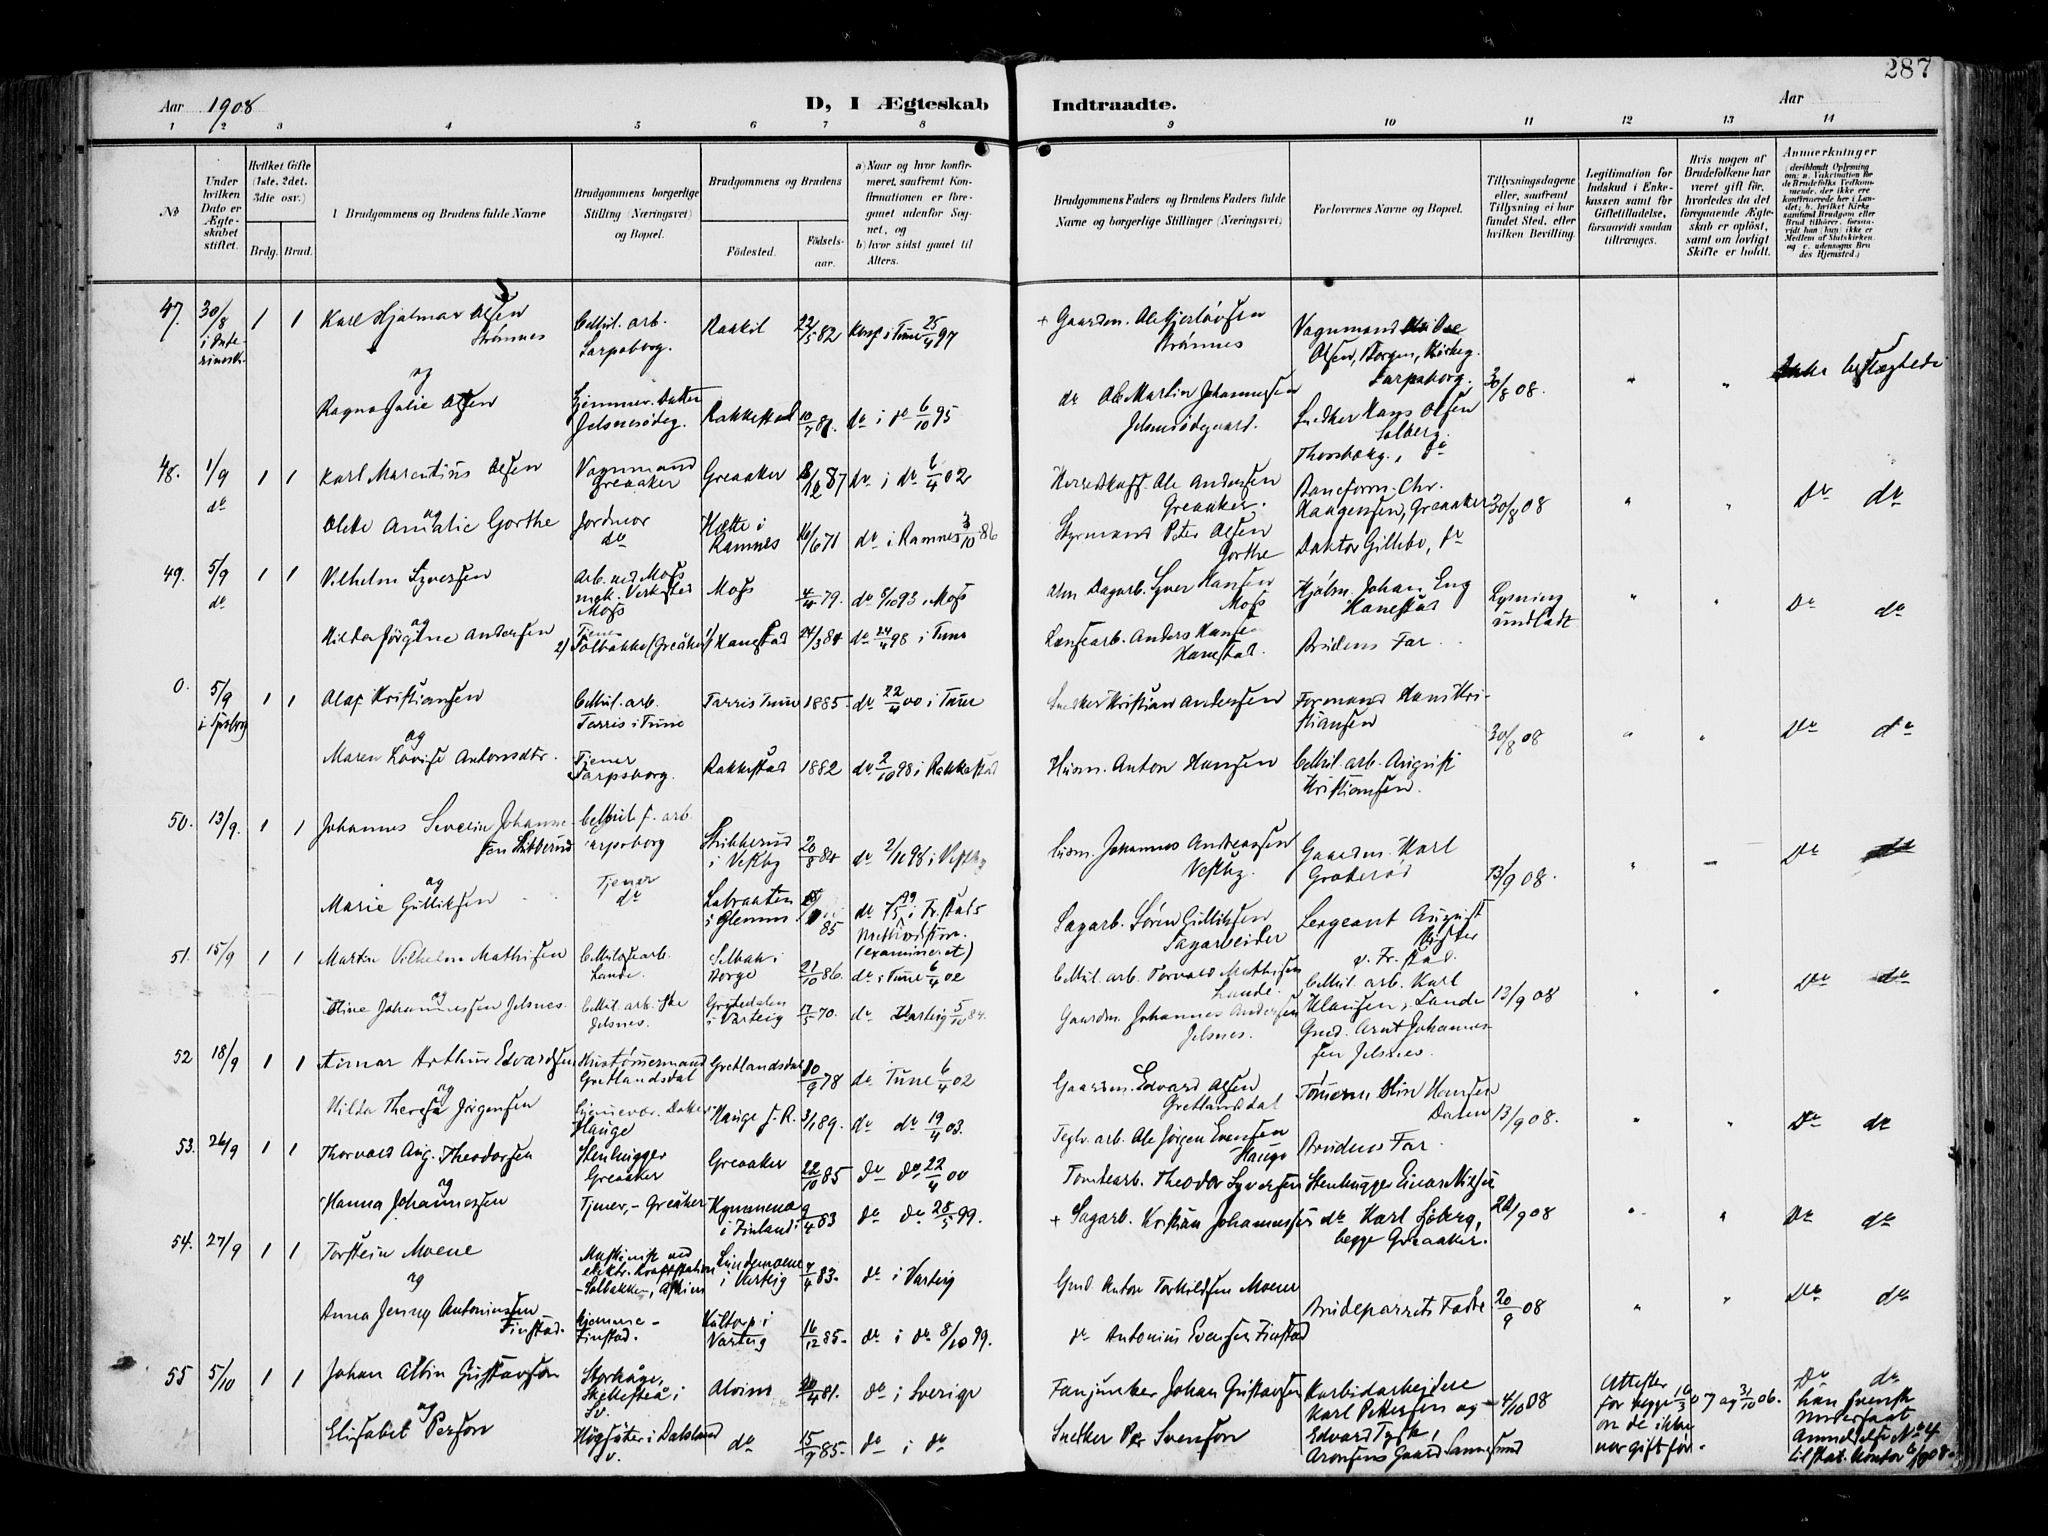 287
Aar 1908
D, I Ægteskab Indtraadte.
Aar
1 2 3 4 5 6 7 8 9 10 11 12 13 14
No
Under hvilken Dato er Ægteskabet stiftet.
Hvilket Gifte (1ste, 2det, 3die osv.)
Brdg. Brud.
Brudgommens og Brudens fulde Navne
Brudgommens borgerlige Stilling (Næringsvei) og Bopæl.
Brudgommens og Brudens
Fødested.
Fødselsaar.
a) Naar og hvor konfirmeret, saafremt Konfirmationen er foregaaet udenfor Sognet, og
b) hvor sidst gaaet til Alters.
Brudgommens Faders og Brudens Faders fulde Navne og borgerlige Stillinger (Næringsvei)
Forlovernes Navne og Bopæl.
Tillysningsdagene eller, saafremt Tillysning ei har fundet Sted, efter hvilken Bevilling
Legitimation for Indskud i Enkekassen samt for Giftetilladelse, forsaavidt saadan tiltrænges.
Hvis nogen af Brudefolkene har været gift før, hvorledes da det foregaaende Ægteskab er opløst, samt om lovligt Skifte er holdt.
Anmerkninger
47. 30/8 1 1 Karl Hjalmar Olsen Strømnes
Cellul. arb. Sarpsborg.
Raakil 22/5 82 Konf. i Tune 25/4 97
+ Gaardm. Ole Gjerløvsen Strømnes
Vognmand Ole Olsen, Borgen, Kirkeg. Sarpsborg.
30/8 08. " "
beslægtede
og
Ragna Josie Olsen
Hjemmev. Datter Jelsnesødeg.
Rakkestad 10/7 81 do i do 6/10 95
do Ole Martin Johannesen Jelsnesødegaard.
Snedker Hans Olsen Solberg. Thorsbekg., do
48. 1/9 do 1 1 Karl Marentius Olsen
Vognmand Greaaker
Greaaker 8/12 87 do i do 6/4 02
Ole Andersen Greaaker.
Baneform. Chr. Haagensen, Greaaker
30/8 08 " " Do do
og
Olete Amalie Gorthe
Jordmor do
Hætte i Ramnes 16/6 71 do i Ramnes 3/10 86
Styrmand Peter Olsen Gorthe
Doktor Gillebo, do
49. 5/9 do 1 1 Vilhelm Syversen
Arb. ved Moss mek. Verksted Moss
Moss 4/4 79. do 8/10 93 i Moss
Dagarb. Syver Hansen Moss
Hjølm. Johan Eng Hanestad
Lysning undladt " " Do do
og
Hilda Jørgine Andersen
2) Tjener Solbakke (Greaaker)
1) Hanestad 24/3 84 do 24/4 98 i Tune
Lensearb. Anders Hansen Hanestad.
Brudens Far.
0. 5/9 1 1 Olaf Kristiansen
Cellul. arb. Torris i Tune
Torris Tune 1885 do 22/4 00 i Tune
Snedker Kristian Andersen
Formand Hans Kristiansen
30/8 08 " " Do do
og
Maren Lovise Antonsdtr.
Tjener Sarpsborg.
Rakkestad 1882 do 2/10 98 i Rakkestad
Husm. Anton Hansen
Cellul. arb. August Kristiansen.
50. 13/9. 1 1 Johannes Severin Johannesen Stikkerud
Cellul. f. arb. Sarpsborg
Stikkerud i Vestby 20/8 84 do 2/10 98 i Vestby
Husm. Johannes Andreassen Vestby.
Gaardm. Karl Graterød
13/9 08. " – Do
og
Marie Gulliksen
Tjener do
Labraaten i Glemm. 85 do i Fr.stads Methodistm. (examineret)
Sagarb. Søren Gulliksen Sagarbeider
Sergeant August v. Fr.stad.
51. 15/9 1 1 Martin Vilhelm Mathisen
Cellulosearb. Lande.
Selbak i Borge 21/10 86. do i Tune 6/4 02
Cellul. arb. Torvald Mathisen Lande.
Cellul. arb. Karl Klausen, Lande
13/9 08 " " Do do
og
Stine Johannessen Jelsnes.
Cellul. arb.ske Jelsnes.
Grytedalen i Varteig 17/5 70. do Varteig 5/10 84.
Gaardm. Johannes Andersen Jelsnes.
Gmd. Arnt Johannessen Jelsnes.
52 18/9 1 1 Aimar Arthur Edvardsen
Hustømmermand Gretlandsdal
Gretlandsdal 20/9 78 do Tune 6/4 02
Gaardm. Edvard Olsen Gretlanddal
Tømerm. Olin Hansen Dalen
13/9 08. " " Do do
og
Hilda Theresa Jørgensen
Hjemmevær. Datter Hauge
Hauge f. R. 3/1 89. do do 19/4 03.
Teglv. arb. Ole Jørgen Evensen Hauge
Brudens Far
53. 26/9 1 1 Thorvald Aug. Theodorsen
Stenhugger Greaaker
Greaaker 22/10 85 do do 22/4 00
Tomtearb. Theodor Syversen
Stenhugger Einar Nilsen
20/9 08 " " Do do
og
Hanna Johannessen
Tjener, - Greaaker
Kymmene i Finland 9/4 83 do do 28/5 99.
+ Sagarb. Kristian Johannessen
do Karl Sjøberg, begge Greaaker.
54. 27/9 1 1 Torstein Moene
Maskinist ved elektr. Kraftstation Solbakken, Askim
Lundemoene i Varteig 7/4 83. do i Varteig
Gmd Anton Torkildsen Moene
Brudeparrets Fædre
20/9 08 " " Do do
og
Anna Jenny Antoniussen Finstad.
Hjemme - Finstad.
Kultorp i Varteig 16/12 85. do i do 8/10 99.
do Antonius Evensen Finstad
55 5/10 1 1 Johan Albin Gustavson
Skellefteå i Sv.
Alvina 20/4 81. do i Sverige
Fanjunker Johan Gustavsen
Karbidarbejdere Karl Pettersen og
4/10 08
Attester for begge 16/3 07 og 31/10 06. om de ikke var gift før.
Do do
han svensk Undersaat
Anmeldelse No 4 til stat. kontor 6/10 08.
og
Elisabet Person
Högsäter i Dalsland Sv.
do 15/9 85 do i do
Snedker Per Svenson
Edvard Tysk, Aronsens Gaard Sannesund